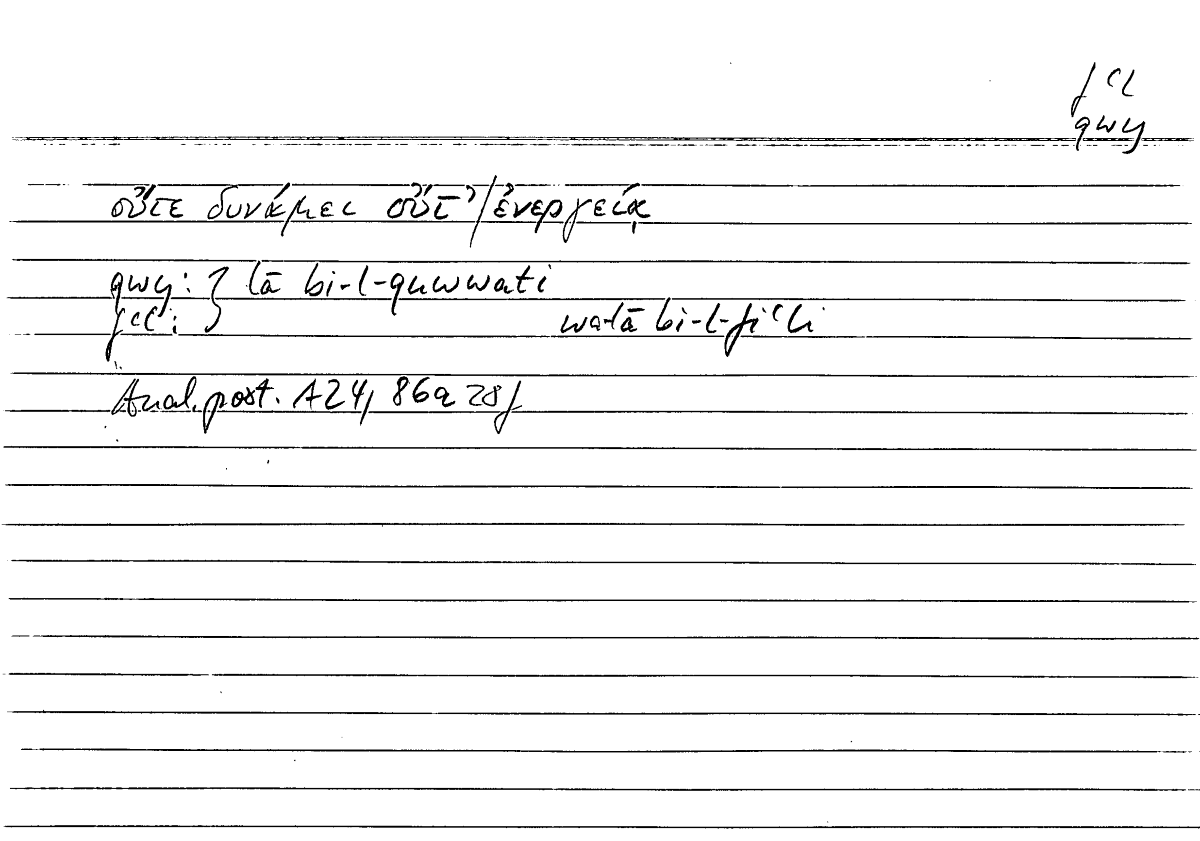 fʿl
qwy
οὔτε δυνάμει οὔτ’/ἐνεργείᾳ
qwy: } lā bi-l-quwwati
fʿl: } wa-lā bi-l-fiʿli
Anal. post. A24, 86a 28f